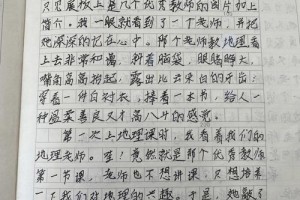 只见展板上是几个优秀教师的图片和上
简介，我一眼就看到了一个老师，并把
她深深的记在心中。那个老师教地理看
上去非常和蔼，斜着脑袋，眼睛睁大，
嘴角高高扬起，露出儿云来白的牙齿；
穿着一件白衬衣，捧着一本书，给人一
种温柔善良又才高八斗的感觉。
第一次上地理课时，我看着我们的
地理老师。哇！竟然就是那个优秀教师
第一节课，老师也不想讲课，只想培养
一下我们对地理的兴趣。于是，她敲了